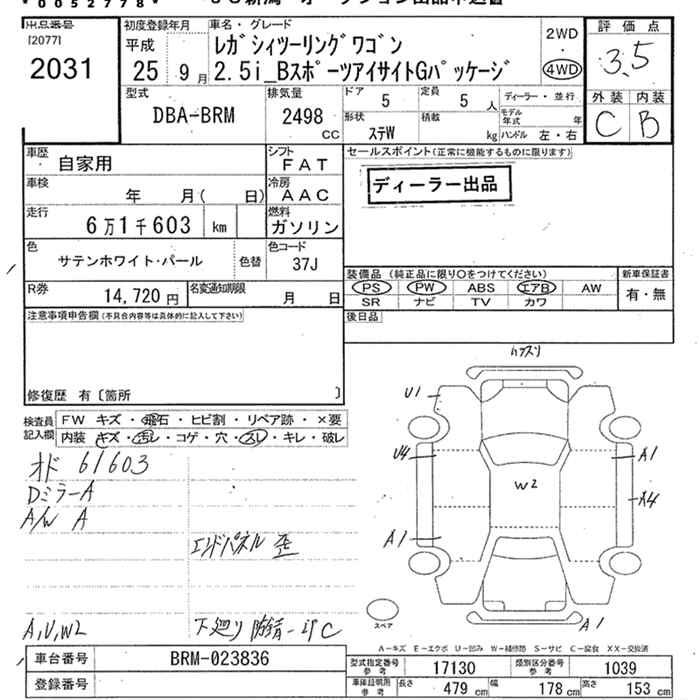 *0052778*
出品番号
[2077]
2031
初度登録年月
平成
25年 9月
車名・グレード
レガシィツーリングワゴン
2.5i_Bスポーツアイサイト Gパッケージ
2WD
・
4WD
評価点
3.5
外装 内装
C B
型式
DBA-BRM
排気量
2498
CC
ドア 5
定員 5 人
ディーラー・並行
形状 ステW
積載 kg
モデル年式 年
ハンドル 左・右
車歴 自家用
シフト FAT
車検 年 月( 日)
冷房 AAC
走行 6万1千603 km
燃料 ガソリン
色 サテンホワイト・パール
色替
色コード 37J
R券 14,720 円
名変通知期限 月 日
セールスポイント(正常に機能するものに限ります)
ディーラー出品
装備品(純正品に限り○をつけてください)
PS PW ABS エアB AW
SR ナビ TV カワ
新車保証書
有・無
後日品
注意事項申告欄(不具合内容等は具体的に記入して下さい)
修復歴 有〔箇所 〕
検査員記入欄
FW キズ・飛石・ヒビ割・リペア跡・×要
内装 キズ・汚レ・コゲ・穴・スレ・キレ・破レ
オド 61603
DミラーA
A/W A
エンドパネル 歪
A,U,W2
U1
U4
A1
W2
A1
A4
A1
スペア
A-キズ E-エクボ U-凹み W-補修跡 S-サビ C-腐食 XX-交換済
車台番号 BRM-023836
登録番号
型式指定番号 参考 17130
類別区分番号 参考 1039
車庫証明用 参考
長さ 479 cm
幅 178 cm
高さ 153 cm